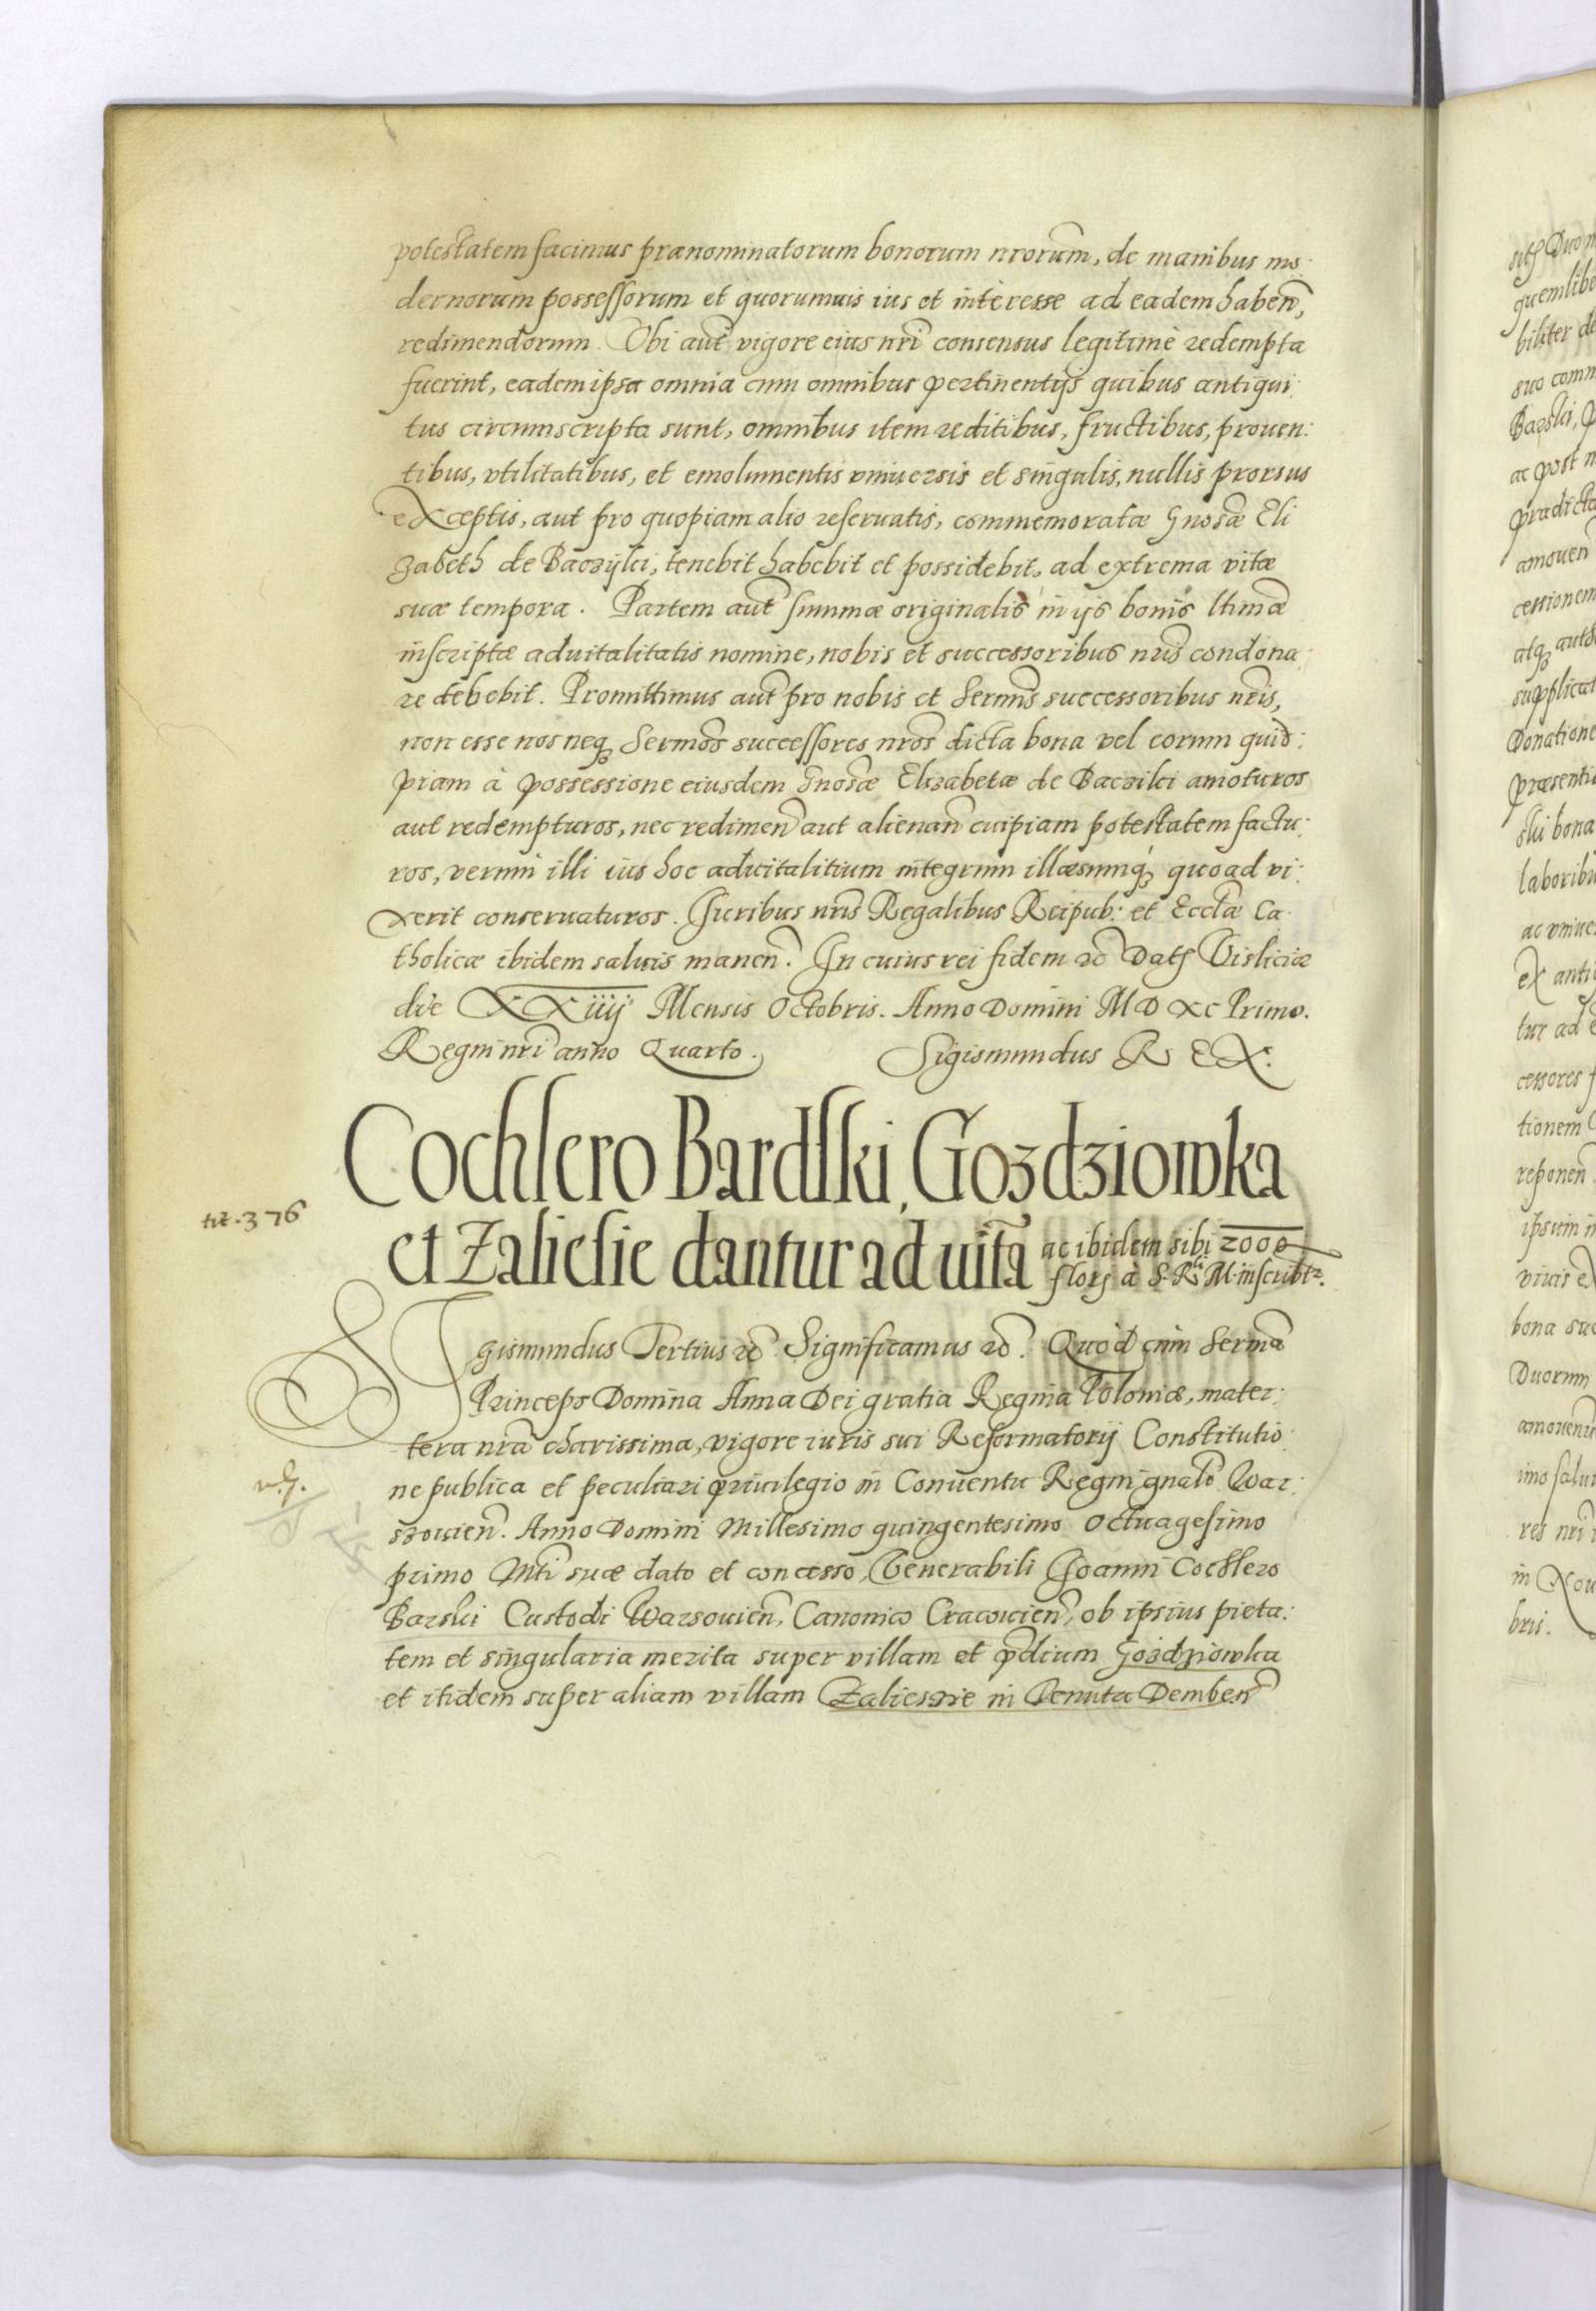 potestatem facimus prænominatorum bonorum nrorum, de manibus mo:
dernorum possessorum et quorumvis ius et interesse ad eadem haben,
redimendorum. Vbi aut vigore eius nri consensus legitimè redempta
fuerint, eadem ipsa omnia cum omnibus pertinentijs quibus antiqui:
tus circumscripta sunt, omnibus item reditibus, fructibus, proven:
tibus, vtilitatibus, et emolumentis vniuersis et singulis, nullis prorsus
exceptis, aut pro quopiam alio reseruatis, commemoratæ Gnosæ Eli
zabeth de Baczijlci, tenebit habebit et possidebit, ad extrema vitæ
suæ tempora. Partem aut summæ originalis in ijs bonis ltimæ
inscriptæ aduitalitatis nomine, nobis et successoribus nris condona:
re debebit. Promittimus aut pro nobis et Sermis successoribus nris,
non esse nos neq Sermos successores nros dicta bona vel eorum quid:
piam à possessione eiusdem Gnosæ Elizabetæ de Baczilci amoturos
aut redempturos, nec redimen aut alienan cuipiam potestatem factu:
ros, verum illi ius hoc aduitalitium integrum illæsumq quoad vi:
xerit conseruaturos. Juribus nris Regalibus Reipub: et Ecclæ Ca
tholicæ ibidem saluis manen. In cuius rei fidem &c Dat Visliciæ
die XXiiij Mensis Octobris. Anno Domini MD XC Primo.
Regni nri anno Quarto. Sigismundus REX.
Cochlero Bardski, Gozdziowka
et Zaliesie dantur ad uita ac ibidem sibi 2000
flor à S. R. M. inscribtr.
tit. 376
SIgismundus Tertius &c. Significamus &c. Quòd cum Serma
Princeps Domina Anna Dei gratia Regina Poloniæ, mater:
tera nra charissima, vigore iuris sui Reformatorij Constitutio:
ne publica et peculiari priuilegio in Conuentu Regni gnali War:
szouien. Anno Domini Millesimo quingentesimo Octuagesimo
primo Mti suæ dato et concesso, Venerabili Joanni Cochlero
Barski Custodi Warsouien, Canonico Cracouien, ob ipsius pieta:
tem et singularia merita super villam et pdium Gozdziowka
et itidem super aliam villam Zaliesie in Tenuta Demben